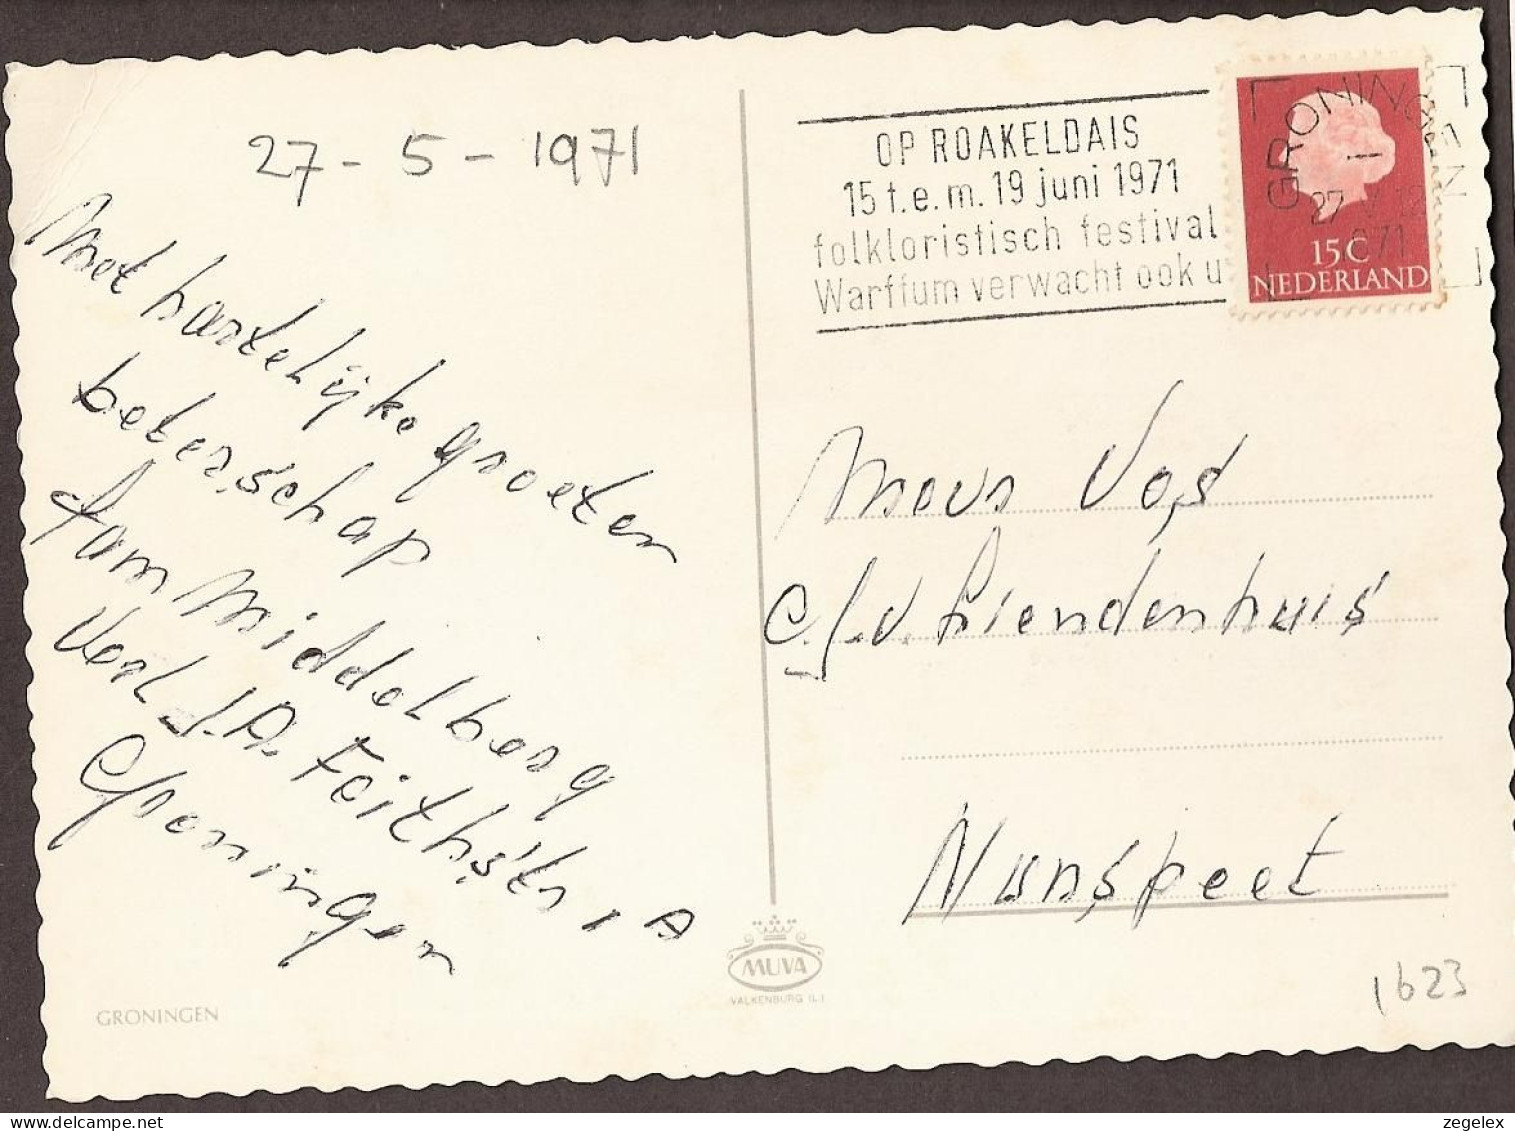 27-5-1971
Met hartelijke groeten
beterschap
fam Middelberg
Verl. J.A. Feithstr 1 A
Groningen
GRONINGEN
OP ROAKELDAIS
15 t.e.m. 19 juni 1971
folkloristisch festival
Warffum verwacht ook u
GRONINGEN
1
27 V 971
15C
NEDERLAND
Mevr Vos
v. Liendenhuis
Nunspeet
MUVA
VALKENBURG (L.)
1623
zegelex